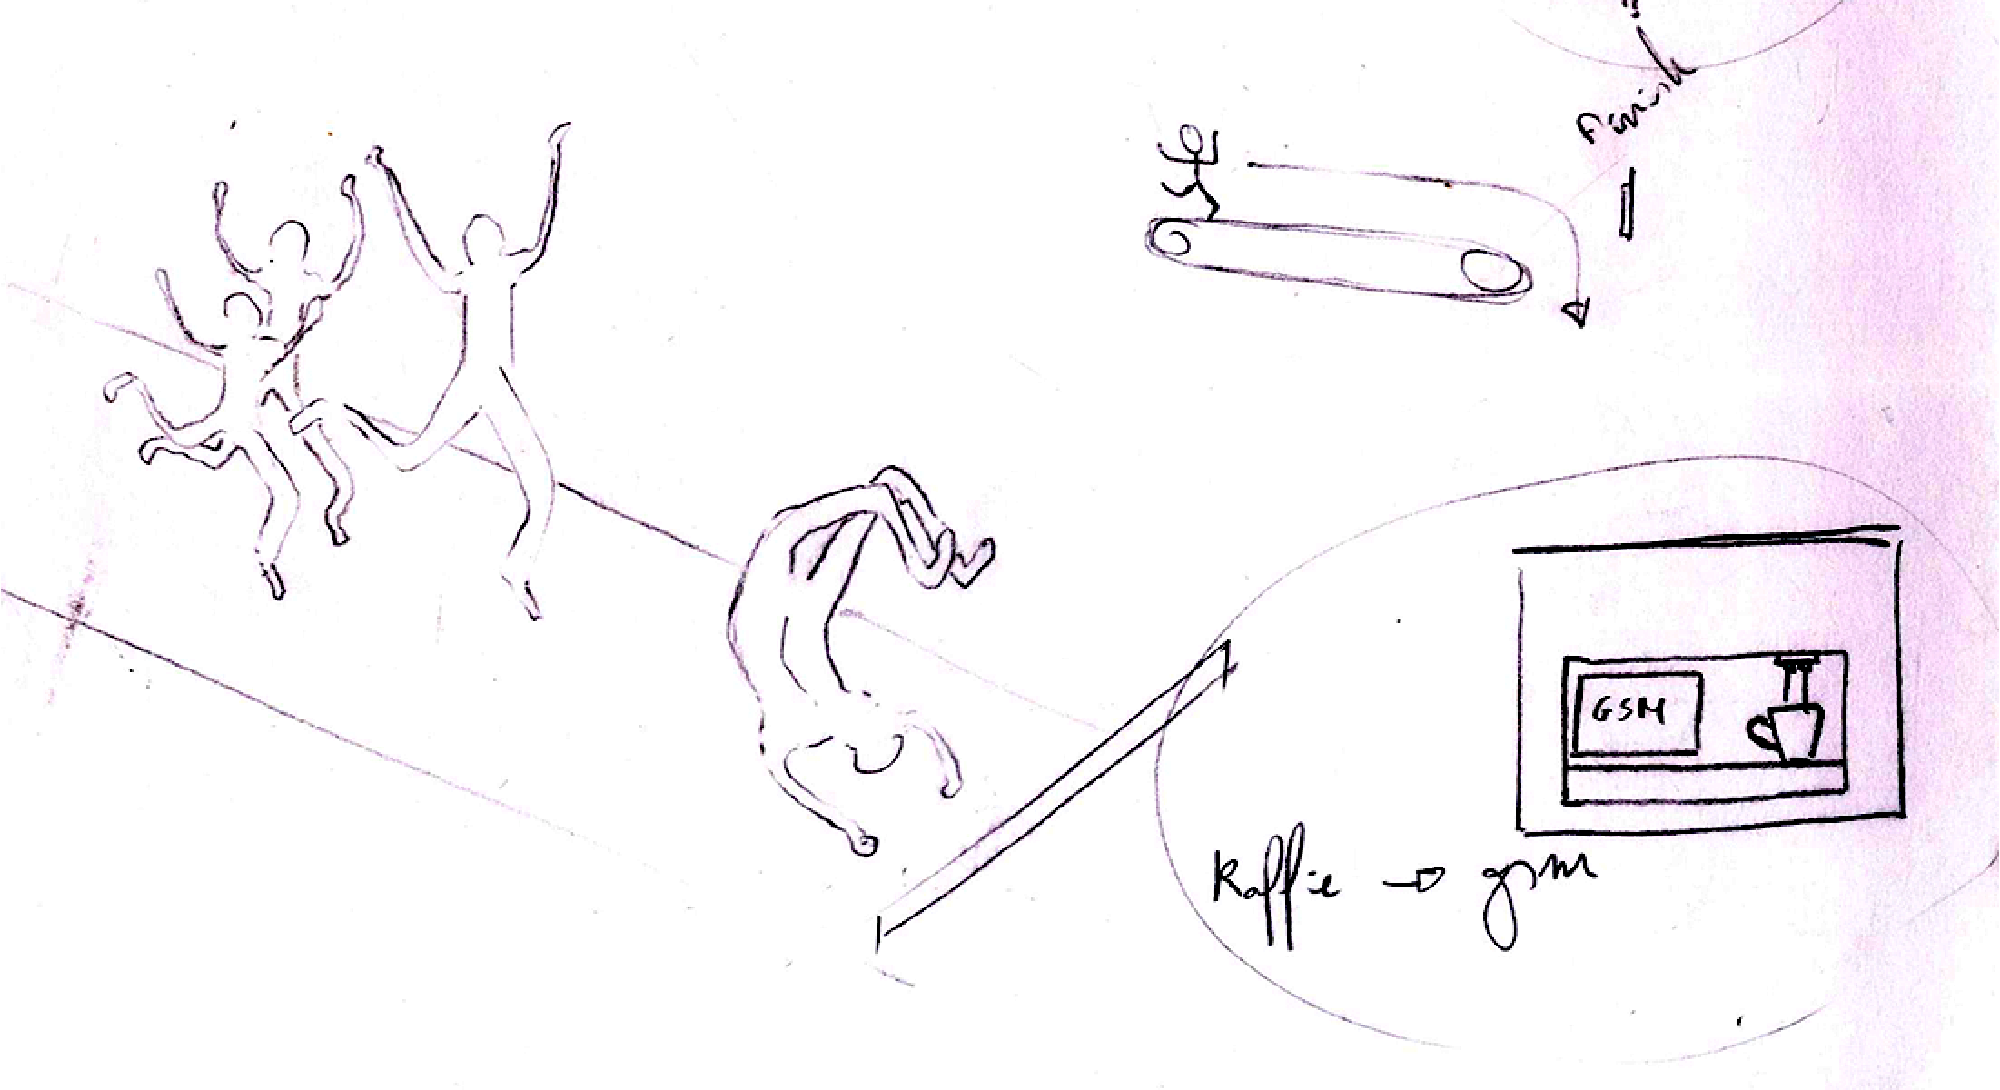 Finish
GSM
Koffie → gsm